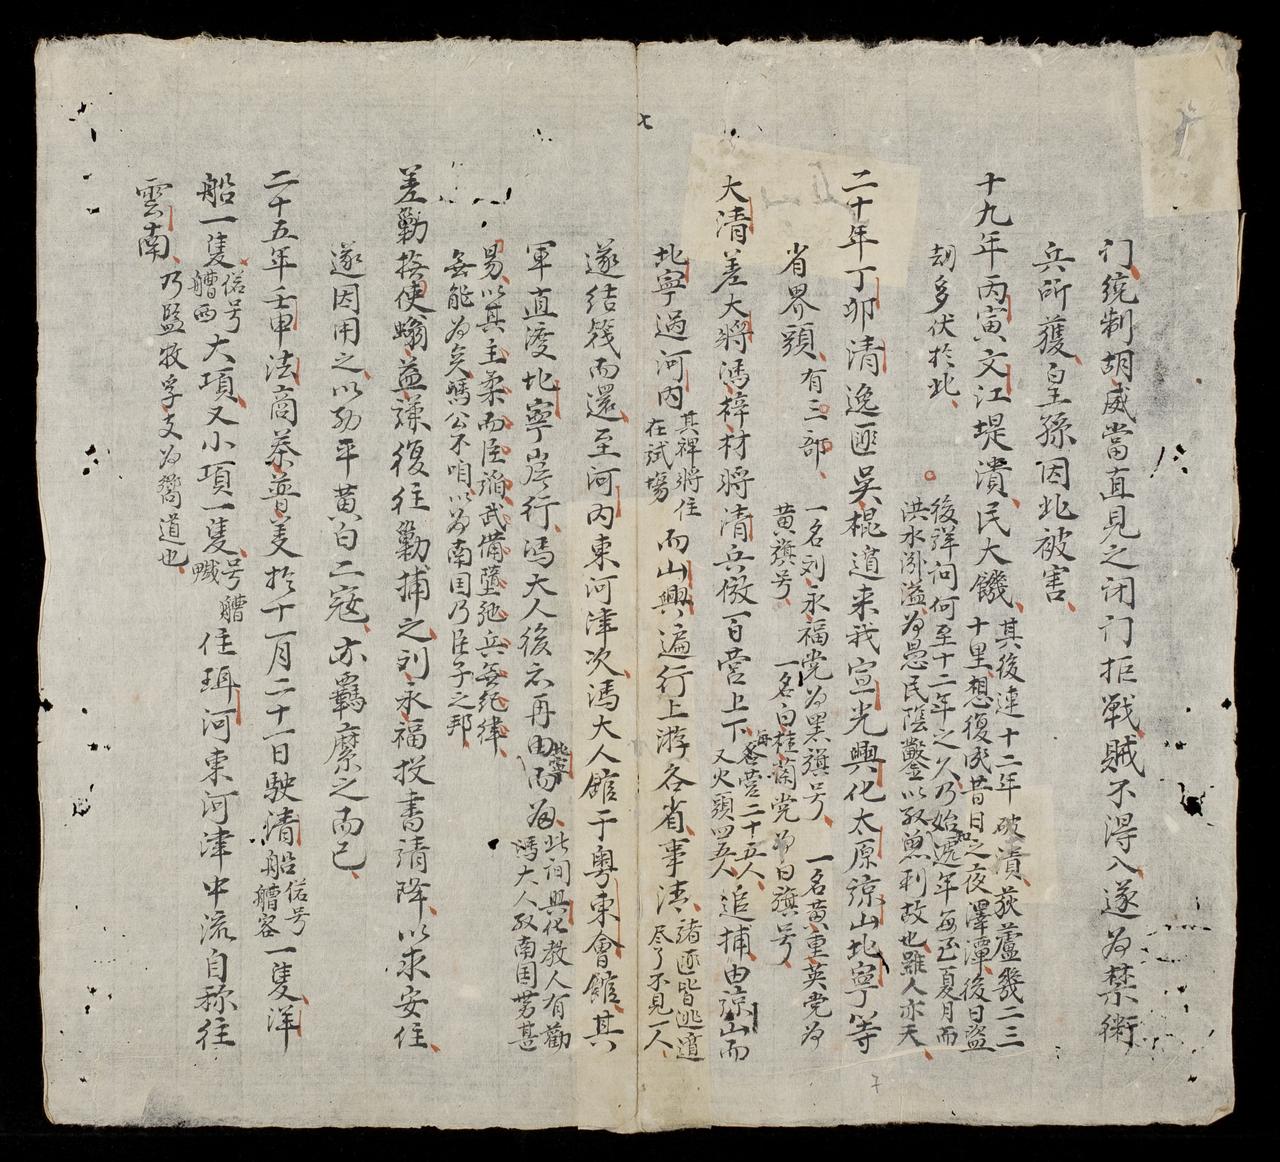 七
门統制胡威當直見之闭门拒戰賊不得入遂为禁衛
兵所獲皇孫因此被害
十九年丙寅文江堤潰民大饑其後連十二年破潰荻蘆幾二三
十里想復成昔日之夜澤潭後日盜
刼多伏於此
後詳问何至十二年之久乃始知逓年每至夏月而
洪水漲溢为愚民陰鑿以取魚利故也雖人亦天
二十年丁卯清逸匪吳棍遁来我宣光興化太原諒山北寧等
省界頭有三部
一名刘永福党为黑旗号
一名黄重英党为
黄旗号
一名白桂蘭党为白旗号
大清差大將馮梓材將清兵倣百营上下每营二十五人
又火頭四五人
追捕由諒山而
北寧過河内其裨將住
在試場
而山興遍行上游各省事清諸匪皆逃遁
尽了不見一人
遂结筏而還至河内東河津次馮大人館于粤東會館其
軍直渡北寧岸行馮大人後亦再由北寧而为
此祠興化教人有勸
馮大人取南国势甚
易以其主柔而臣謟武備墮弛兵無紀律
無能为矣馮公不咱以为南国乃臣子之邦
差勦撫使蝓益謙復往勦捕之刘永福投書請降以求安住
遂因用之以劲平黄白二寇亦羈縻之而已
二十五年壬申法商茶普美於十一月二十一日駛清船俗号
艚客
一隻洋
船一隻俗号
艚西
大項又小項一隻号艚
䑺
住珥河東河津中流自称往
雲南乃監牧孚支为嚮道也